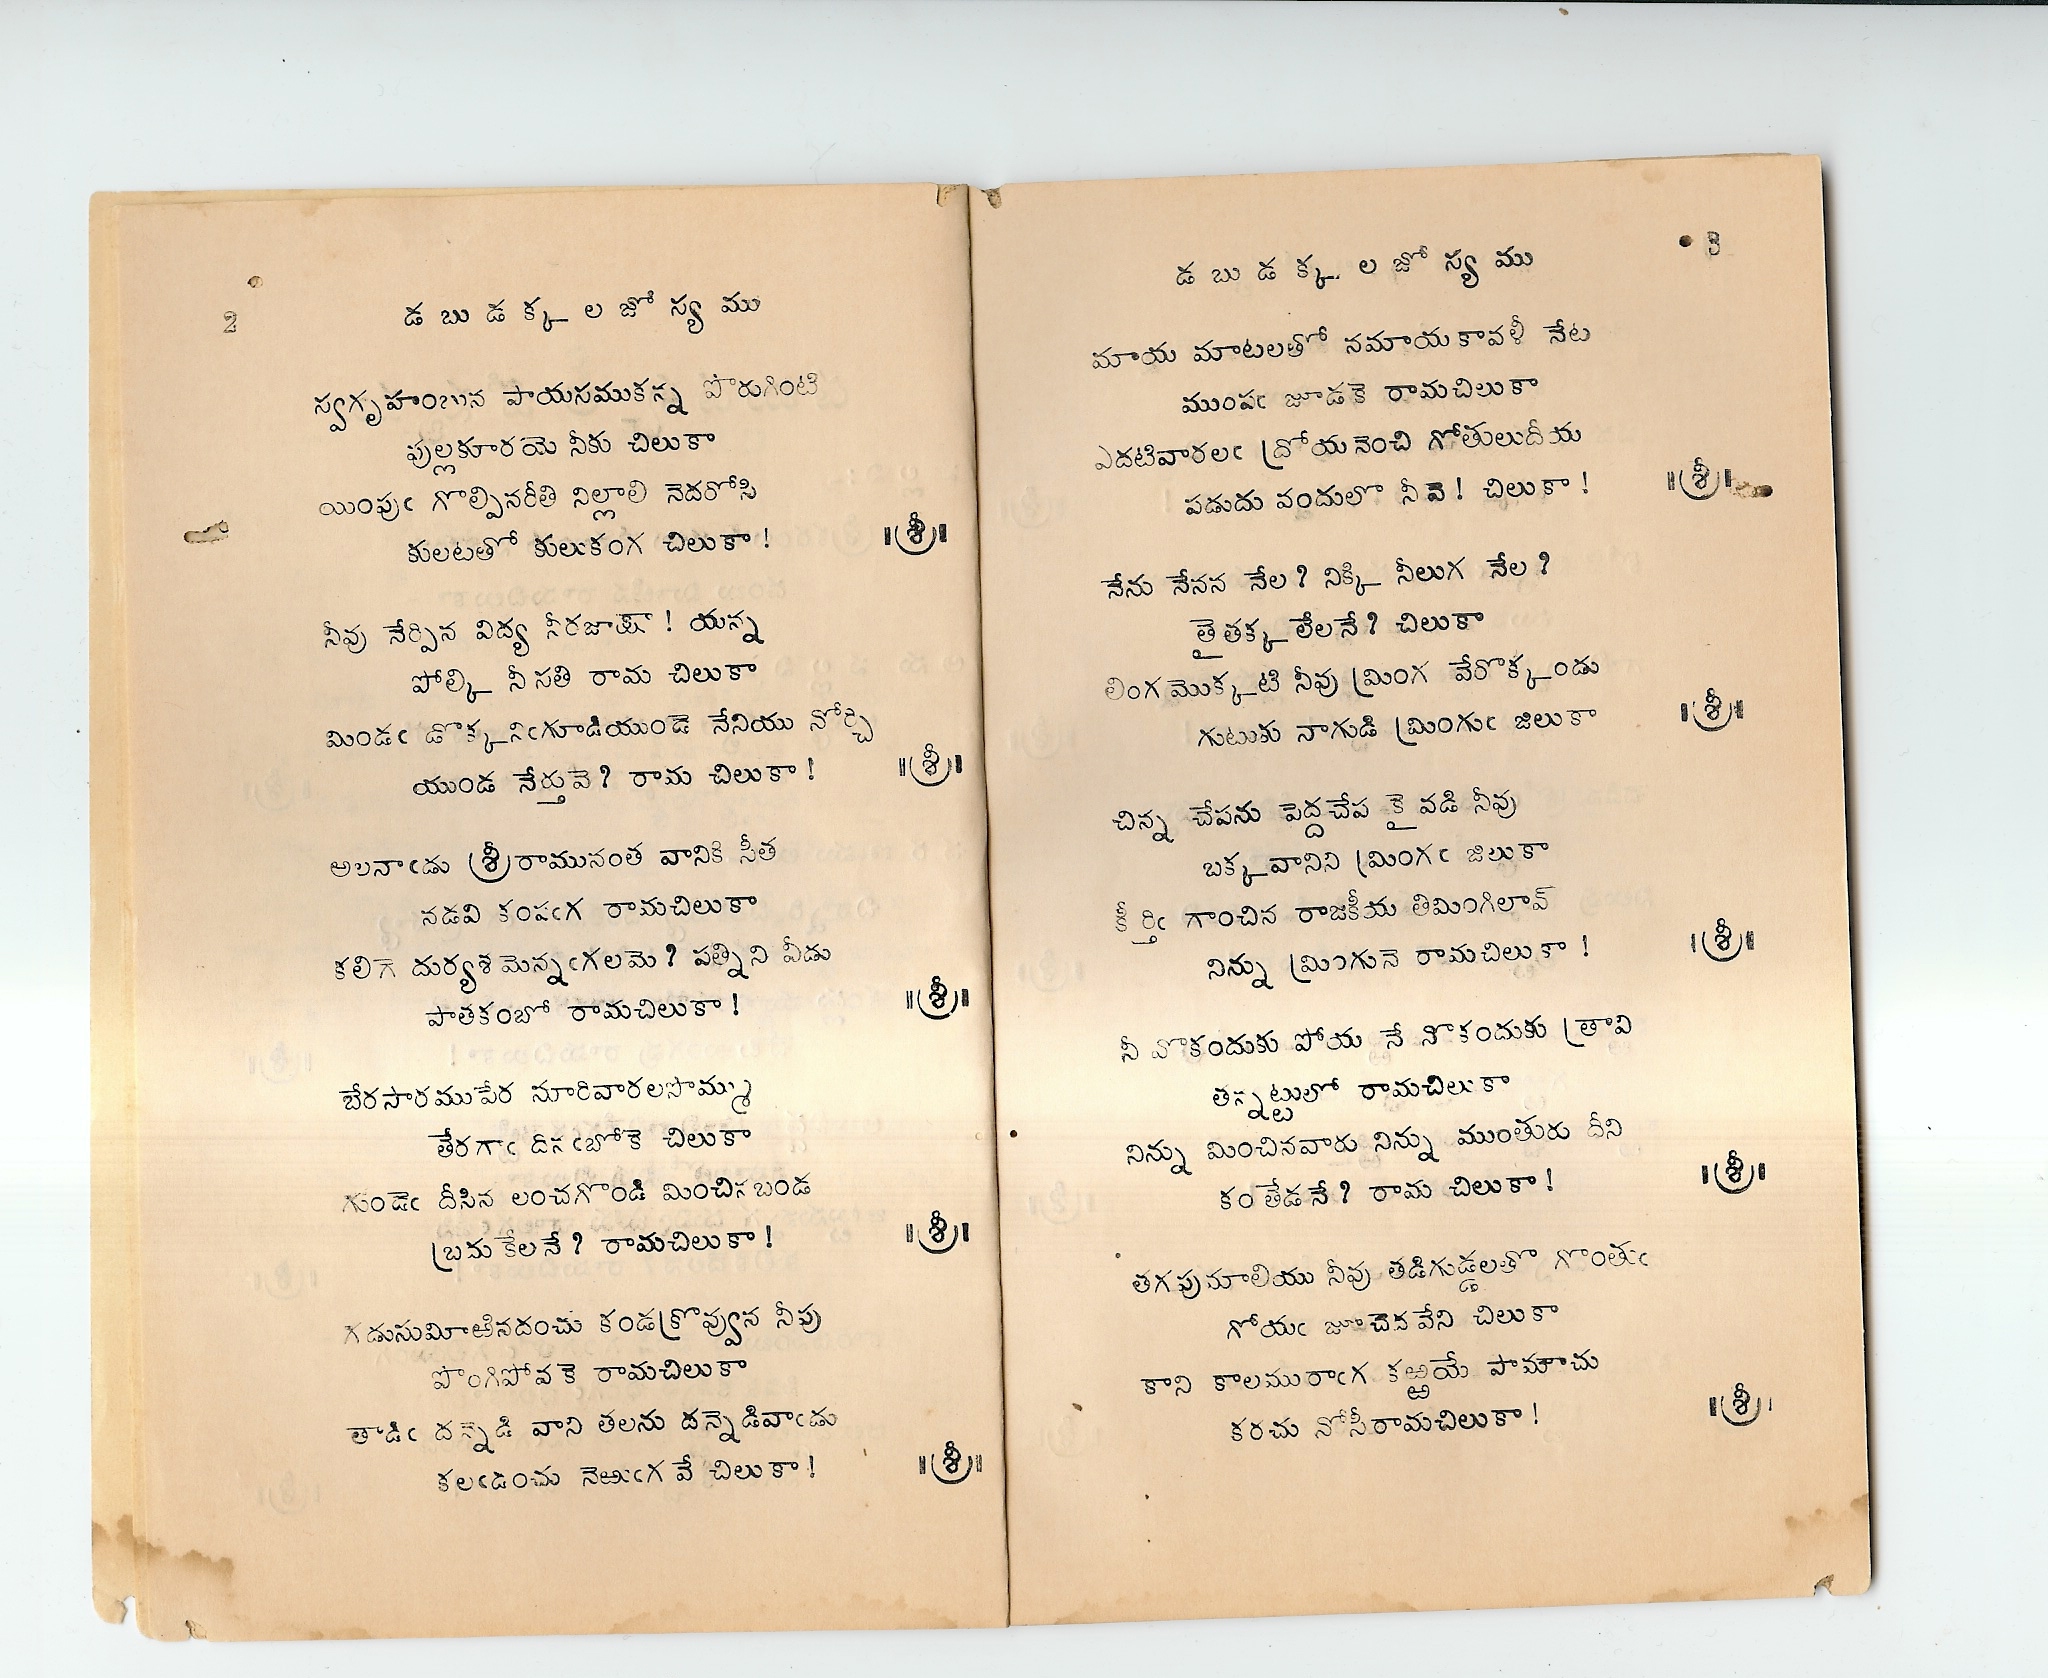 2
డ బు డ క్క ల జో స్య ము
స్వగృహంబున పాయసముకన్న పొరుగింటి
పుల్లకూరయె నీకు చిలుకా
యింపుఁ గొల్పినరీతి నిల్లాలి నెదరోసి
కులటతో కులుకంగ చిలుకా ! ॥శ్రీ॥
నీవు నేర్పిన విద్య నీరజాక్షా ! యన్న
పోల్కి నీ సతి రామ చిలుకా
మిండఁ డొక్కనిఁగూడియుండె నేనియు నోర్చి
యుండ నేర్తువె ? రామ చిలుకా ! ॥శ్రీ॥
అలనాఁడు శ్రీరామునంత వానికి సీత
నడవి కంపఁగ రామచిలుకా
కలిగె దుర్యశమెన్నఁగలమె ? పత్నిని వీడు
పాతకంబో రామచిలుకా ! ॥శ్రీ॥
బేరసారముపేర నూరివారలసొమ్ము
తేరగాఁ దినఁబోకె చిలుకా
గుండెఁ దీసిన లంచగొండి మించినబండ
బ్రదుకేలనే ? రామచిలుకా ! ॥శ్రీ॥
గడుసుమీఱినదంచు కండక్రొవ్వున నీవు
పొంగిపోవకె రామచిలుకా
తాడిఁ దన్నెడి వాని తలను దన్నెడివాఁడు
కలఁడంచు నెఱుఁగవే చిలుకా ! ॥శ్రీ॥
3
డ బు డ క్క ల జో స్య ము
మాయ మాటలతో నమాయకావళీ నేట
ముంపఁ జూడకె రామచిలుకా
ఎదటివారలఁ ద్రోయనెంచి గోతులుదీయ
పడుదు వందులొ నీవె ! చిలుకా ! ॥శ్రీ॥
నేను నేనన నేల ? నిక్కి నీలుగ నేల ?
తైతక్కలేలనే ? చిలుకా
లింగమొక్కటి నీవు మ్రింగ వేరొక్కండు
గుటుకు నాగుడి మ్రింగుఁ జిలుకా ॥శ్రీ॥
చిన్న చేపను పెద్దచేప కై వడి నీవు
బక్కవానిని మ్రింగఁ జిలుకా
కీర్తిఁ గాంచిన రాజకీయ తిమింగిలావ్
నిన్ను మ్రింగునె రామచిలుకా ! ॥శ్రీ॥
నీ వొకందుకు పోయ నే నొకందుకు త్రావి
తన్నట్టులో రామచిలుకా
నిన్ను మించినవారు నిన్ను ముంతురు దీని
కంతేడనే ? రామ చిలుకా ! ॥శ్రీ॥
తగవుమాలియు నీవు తడిగుడ్డలతొ గొంతుఁ
గోయఁ జూచెదవేని చిలుకా
కాని కాలమురాఁగ కఱ్ఱయే పామౌచు
కరచు నోసీరామచిలుకా ! ॥శ్రీ॥